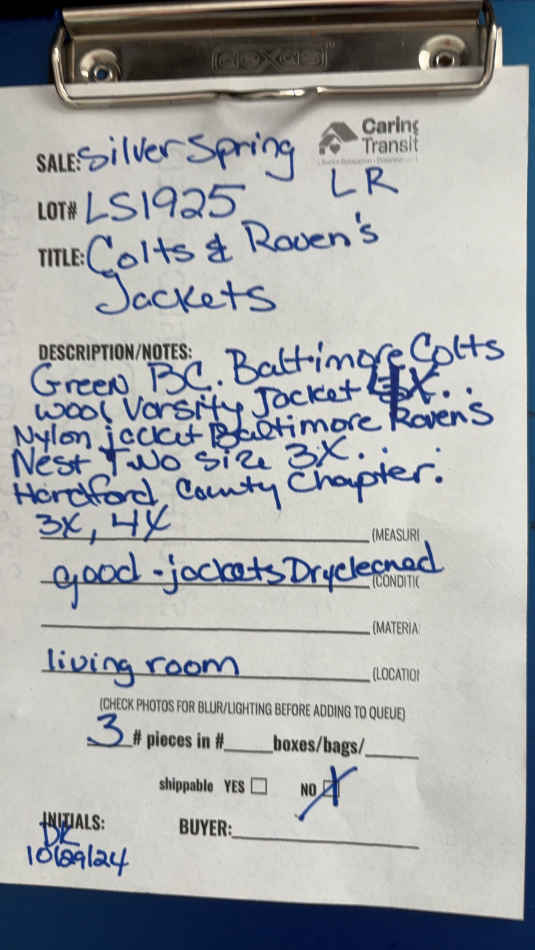 Caring
Transit
SALE: Silver Spring
LR
LOT# LS1925
TITLE: Colts & Raven's
Jackets
DESCRIPTION/NOTES:
Green BC. Baltimore Colts
Wool Varsity Jacket X..
Nylon jacket Baltimore Raven's
Nest Two size 3X..
Hardford County Chapter.
3X, 4X (MEASUR
good - jackets Drycleaned (CONDITIO
(MATERIA
living room (LOCATIO
(CHECK PHOTOS FOR BLUR/LIGHTING BEFORE ADDING TO QUEUE)
3 # pieces in #_____boxes/bags/_____
shippable YES ☐ NO ☒
INITIALS: BUYER:
DK
10/29/24